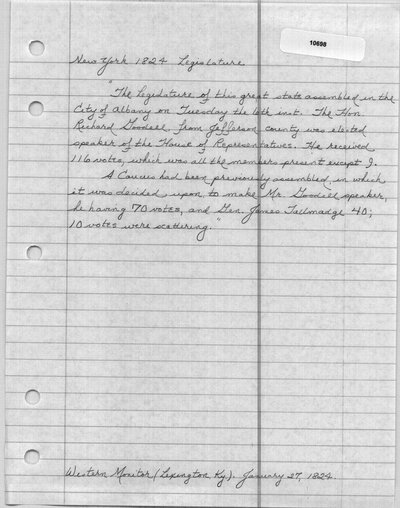 10698
New York 1824 Legislature
"The Legislature of this great state assembled in the
City of Albany on Tuesday the 6th inst. The Hon.
Richard Goodsell from Jefferson county was elected
speaker of the House of Representatives. He received
116 votes, which was all the members present except 9.
A Caucus had been previously assembled in which
it was decided upon to make Mr. Goodsell speaker,
he having 70 votes, and Gen. James Tallmadge 40;
10 votes were scattering."
Western Monitor (Lexington Ky). January 27, 1824.